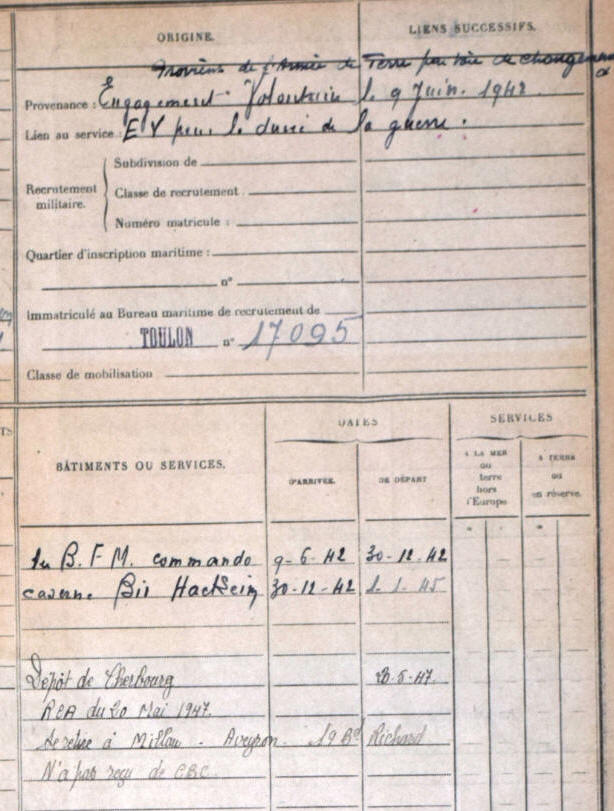 ORIGINE.
LIENS SUCCESSIFS.
Proviens de l'Armée de Terre par voie de changement
Provenance : Engagement Volontaire le 9 Juin 1942
Lien au service : E V pour la durée de la guerre.
Subdivision de
Recrutement militaire.
Classe de recrutement
Numéro matricule :
Quartier d'inscription maritime :
n°
Immatriculé au Bureau maritime de recrutement de
TOULON n° 17095
Classe de mobilisation
TS
BÂTIMENTS OU SERVICES.
DATES
SERVICES
D'ARRIVÉE.
DE DÉPART
A LA MER
ou
terre
hors
d'Europe
A TERRE
ou
en réserve.
1er B. F M. commando 9-6-42 30-12-42
caserne Bir Hackeim 30-12-42 1-1-45
Dépôt de Cherbourg 20-5-47
RCA du 20 Mai 1947.
Se retire à Millau - Aveyron. 19 Bd Richard
N'a pas reçu de CBC.